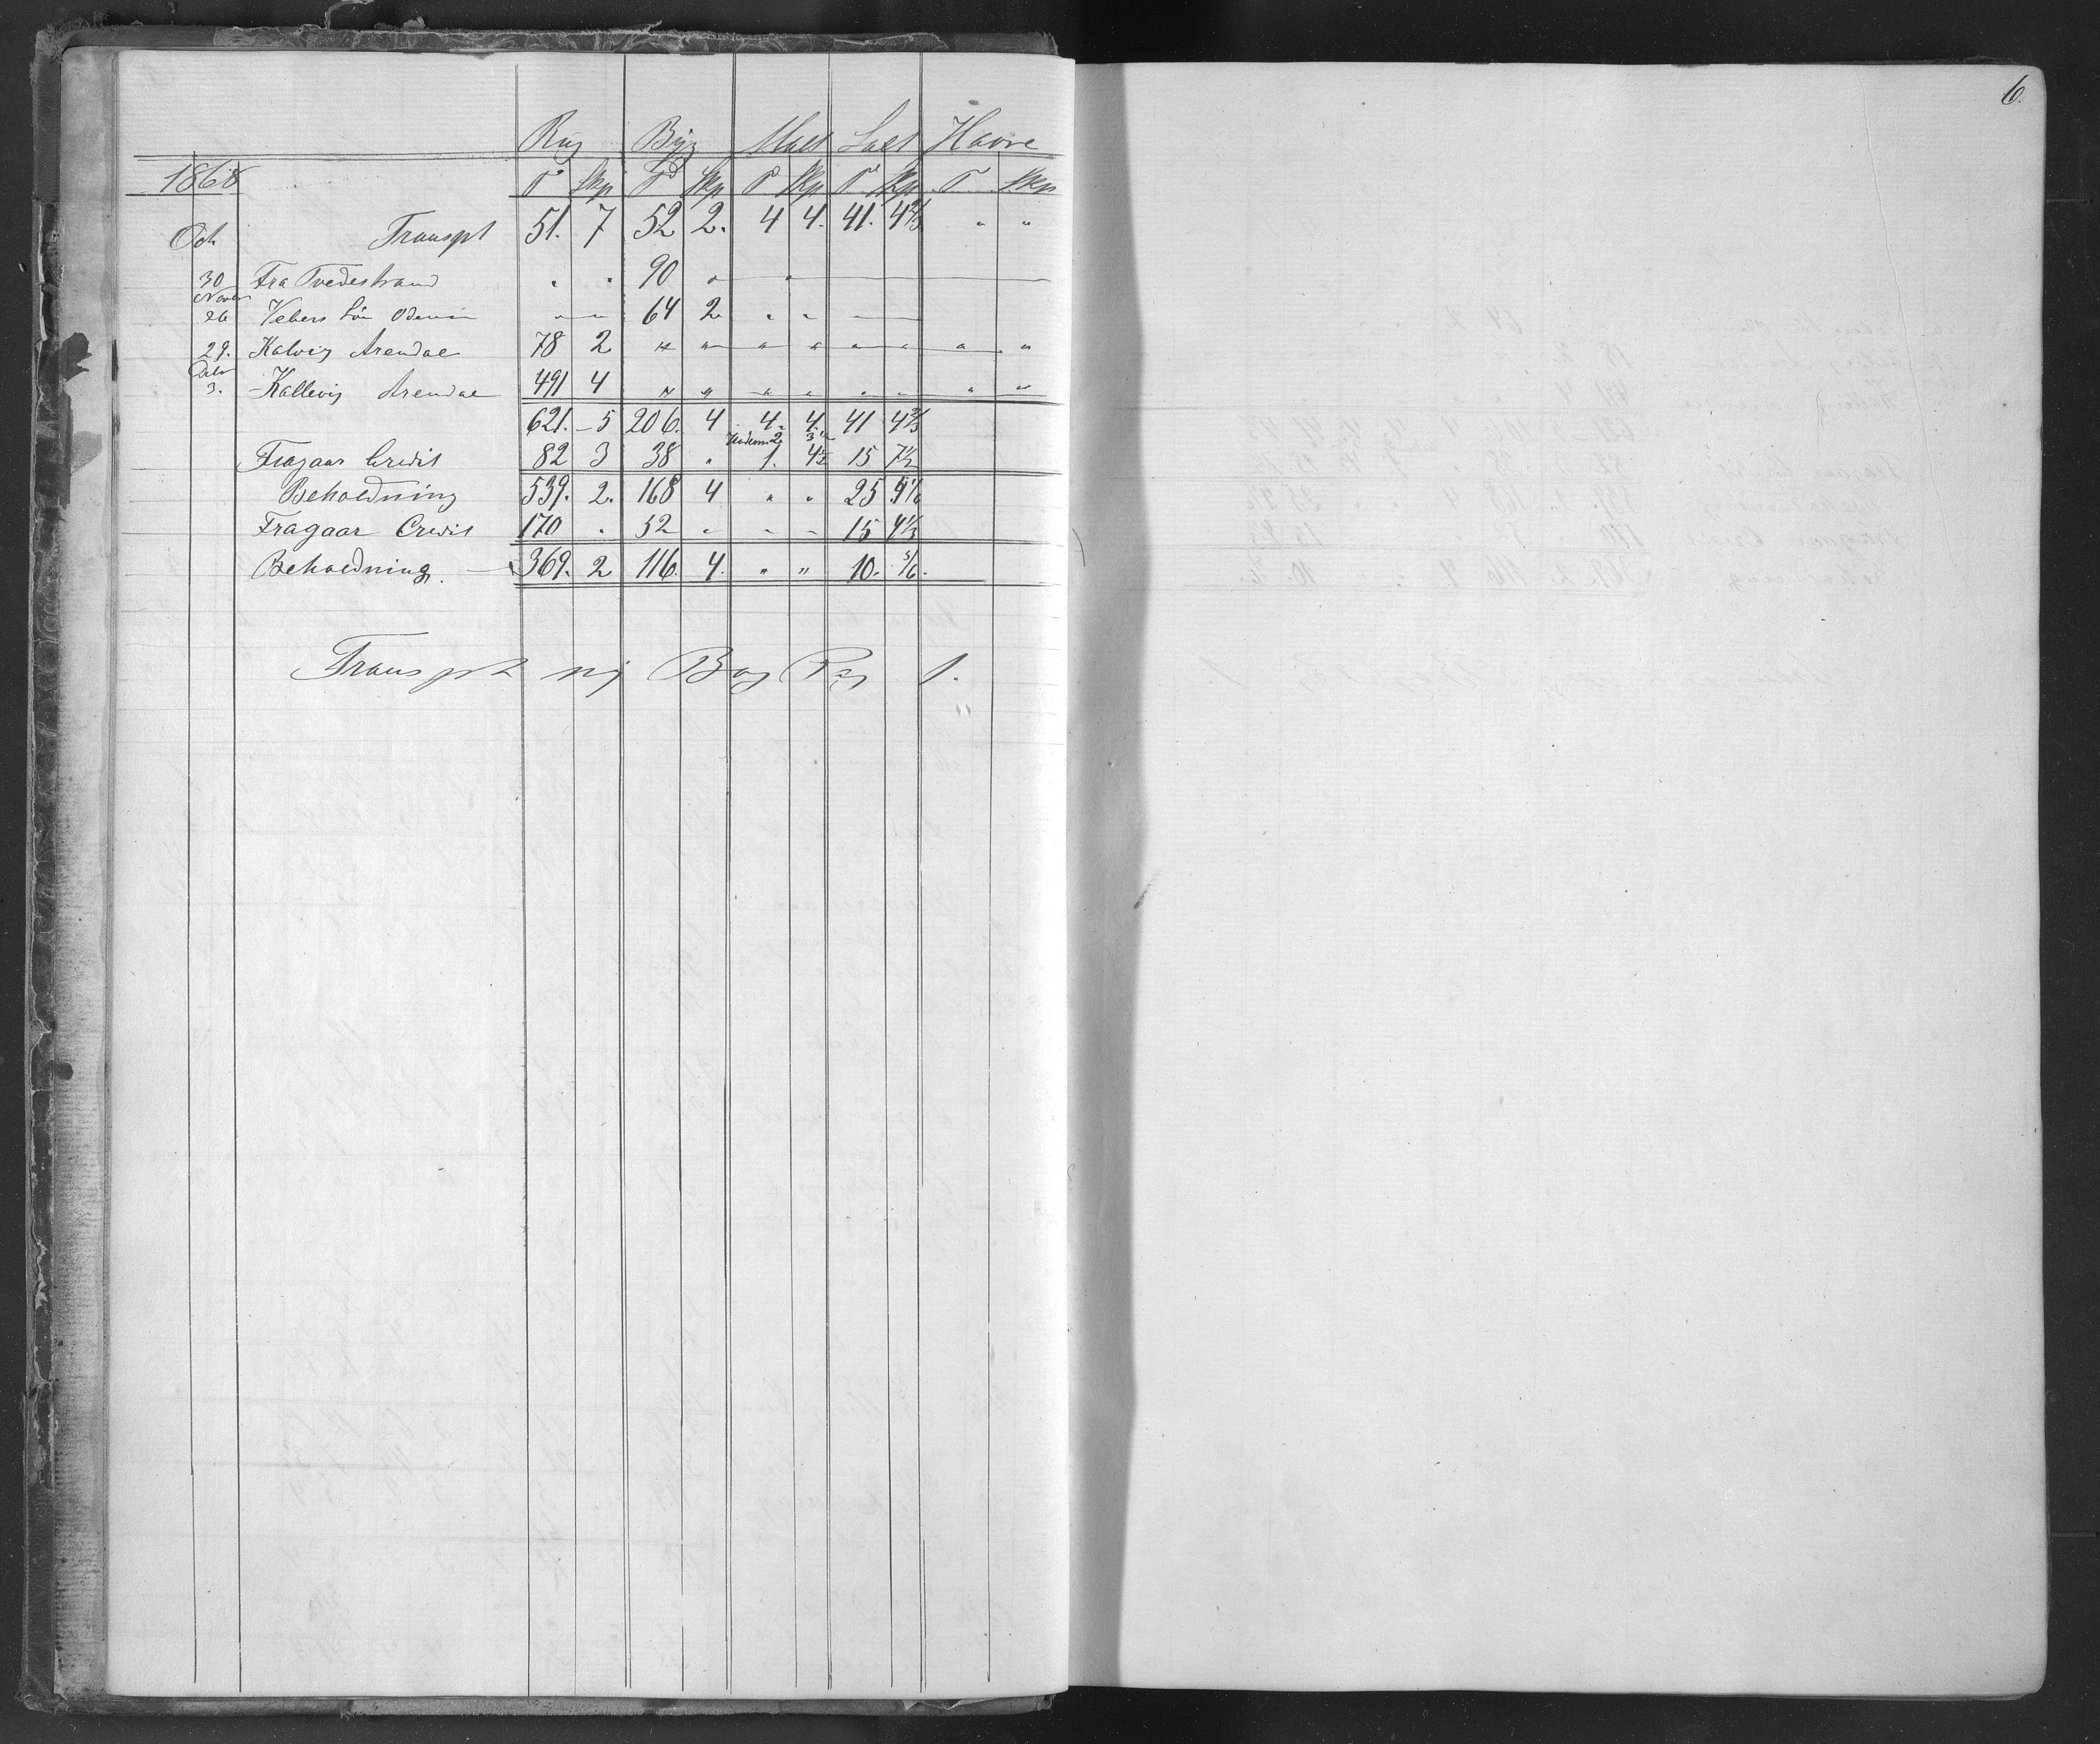 Rug Byg Malt Salt Havre
1868 T Skp T Skp T Skp T Skp T Skp
Oct Transpt 51. 7 52 2. 4 4. 41. 4 2/3 " "
30 Fra Tvedestrand " " 90 "
Novbr
26 Vebers 64 2 " "
29. Kalvig Arendal 78 2 " " " " " " " "
Decbr
3. Kallevig Arendal 491 4 " " " " " " " "
621. 5 206. 4 4. 4. 41 4 2/3
2 3 1/2
Fragaar Credit 82 3 38 " 1. 4 1/2 15 7 1/2
Beholdning 539. 2. 168 4 " " 25 5 1/6
Fragaar Credit 170 " 52 " - - 15 4 1/3
Beholdning. 369. 2 116. 4. " " 10. 5/6.
Transpt ny Bog Pag 1.
6.